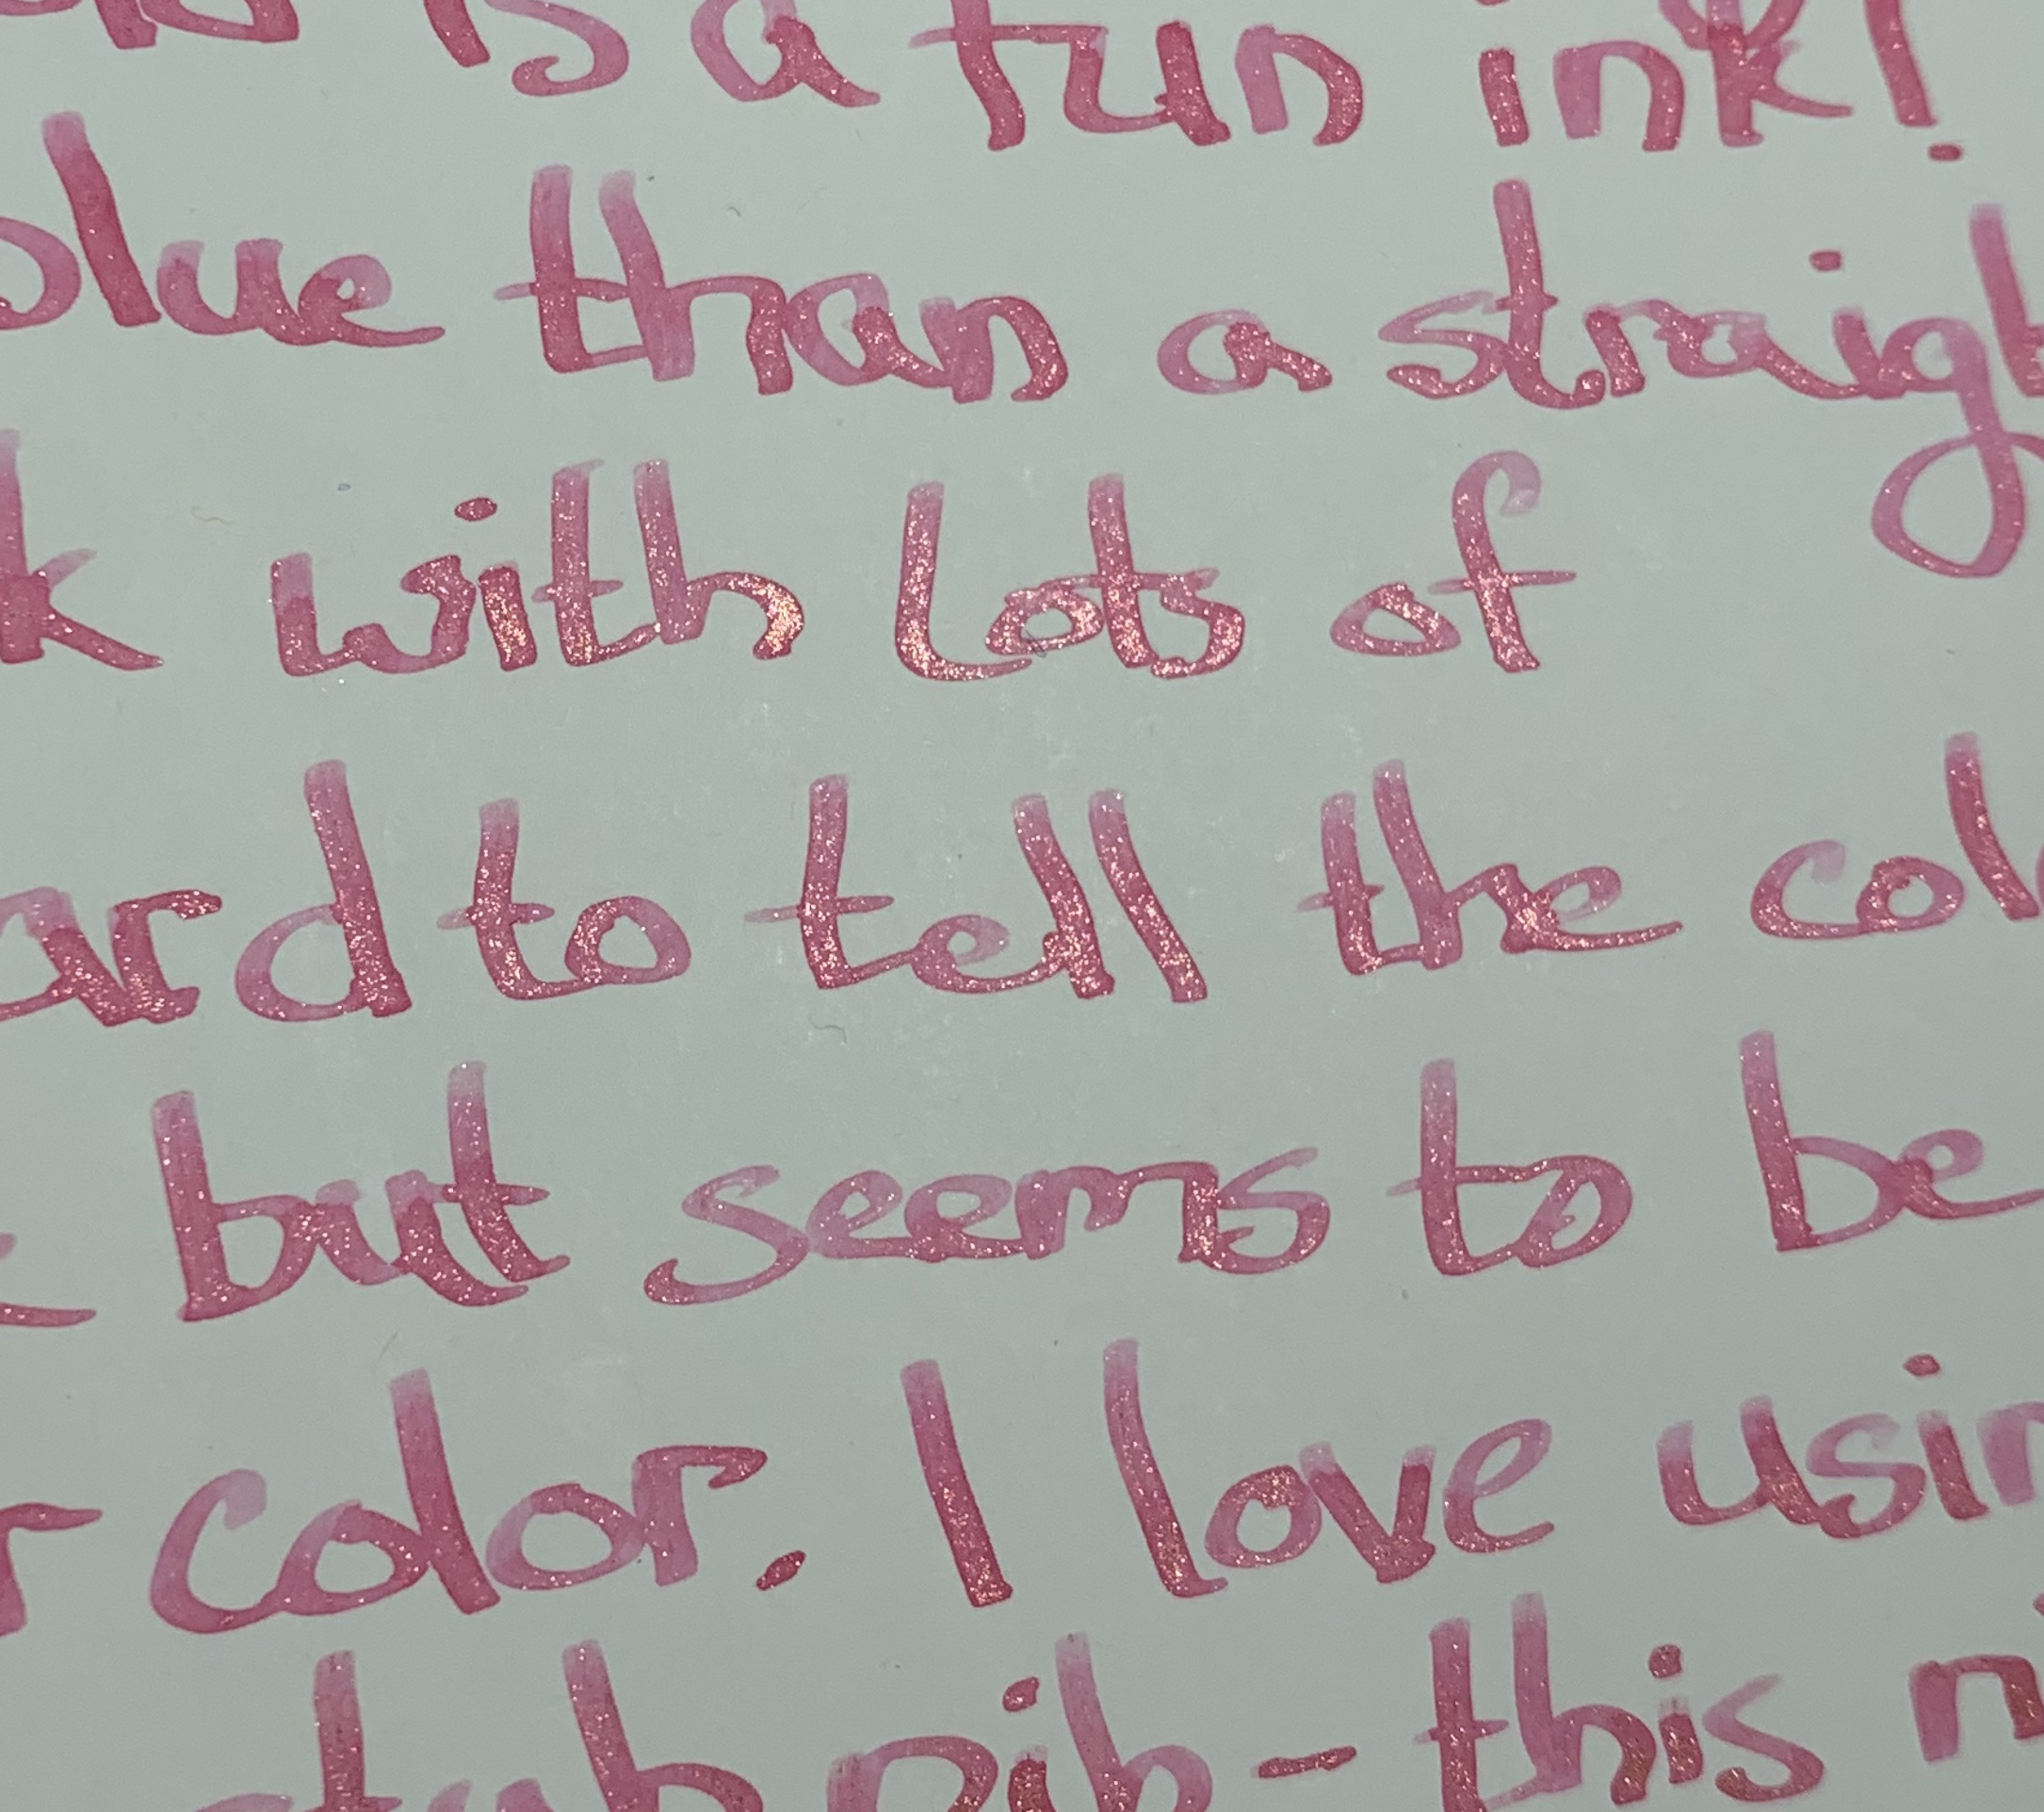 is a fun ink!
blue than a straigh
k with lots of
ard to tell the col
but seems to be
r color. I love usin
stub nib - this n